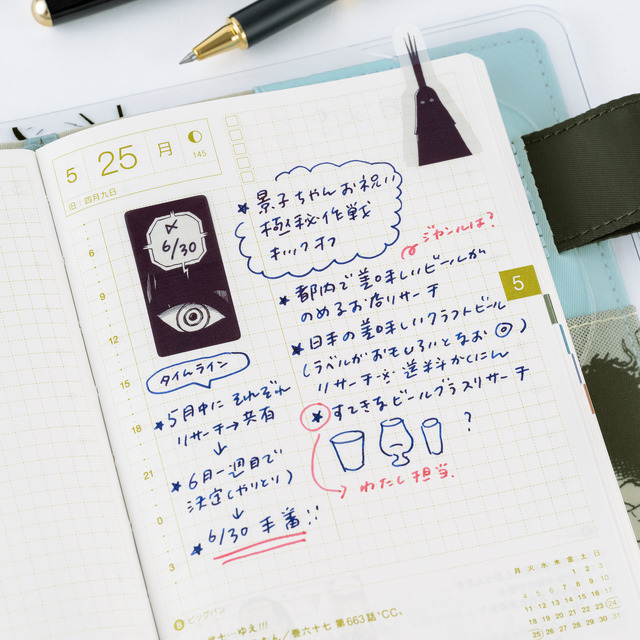 5 25 月 145
旧 四月九日
〆
6/30
★景子ちゃんお祝い
極秘作戦
キックオフ
ジャンルは?
★都内で美味しいビールが
のめるお店リサーチ
★日本の美味しいクラフトビール
(ラベルがおもしろいとなお◎)
リサーチ※送料かくにん
★すてきなビールグラスリサーチ
?
わたし担当.
タイムライン
★5月中に それぞれ
リサーチ→共有
↓
★6月一週目で
決定(やりとり)
↓
★6/30 手着!!
6
9
12
15
18
21
0
3
5
月 火 水 木 金 土 日
1 2 3
4 5 6 7 8 9 10
11 12 13 14 15 16 17
18 19 20 21 22 23 24
25
ビッグバン
巻六十七 第663話 "CC